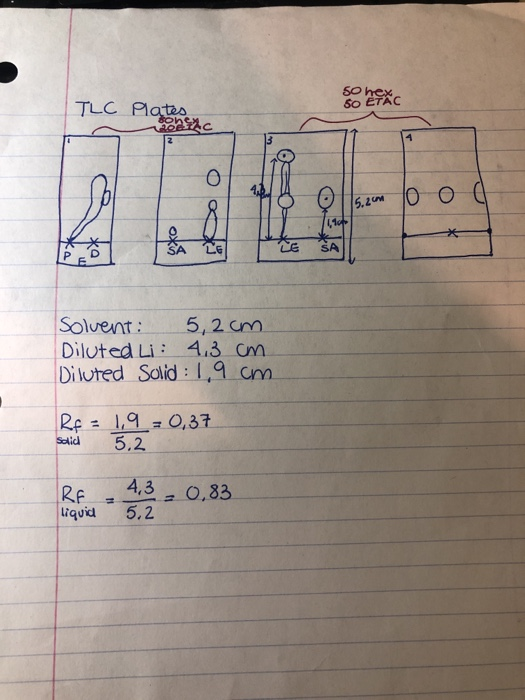 TLC Plates
80 hex
20 ETAC
50 hex
50 ETAC
1
2
3
4
4,3
1,9cm
5,2cm
P E D
SA LE
LE SA
Solvent: 5,2 cm
Diluted Li: 4,3 cm
Diluted Solid: 1,9 cm
Rf solid = 1,9 / 5,2 = 0,37
Rf liquid = 4,3 / 5,2 = 0,83